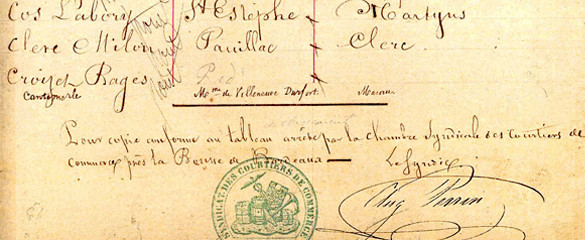 Cos Labory St Estèphe St Martyns
Clerc Milon Pauillac Clerc
Croizet Bages
Cantemerle Mme de Villeneuve Durfort. Macau
Pour copie conforme au tableau arrêté par la Chambre Syndicale des Courtiers de
Commerce près la Bourse de Bordeaux
Le Syndic
SYNDICAT DES COURTIERS DE COMMERCE